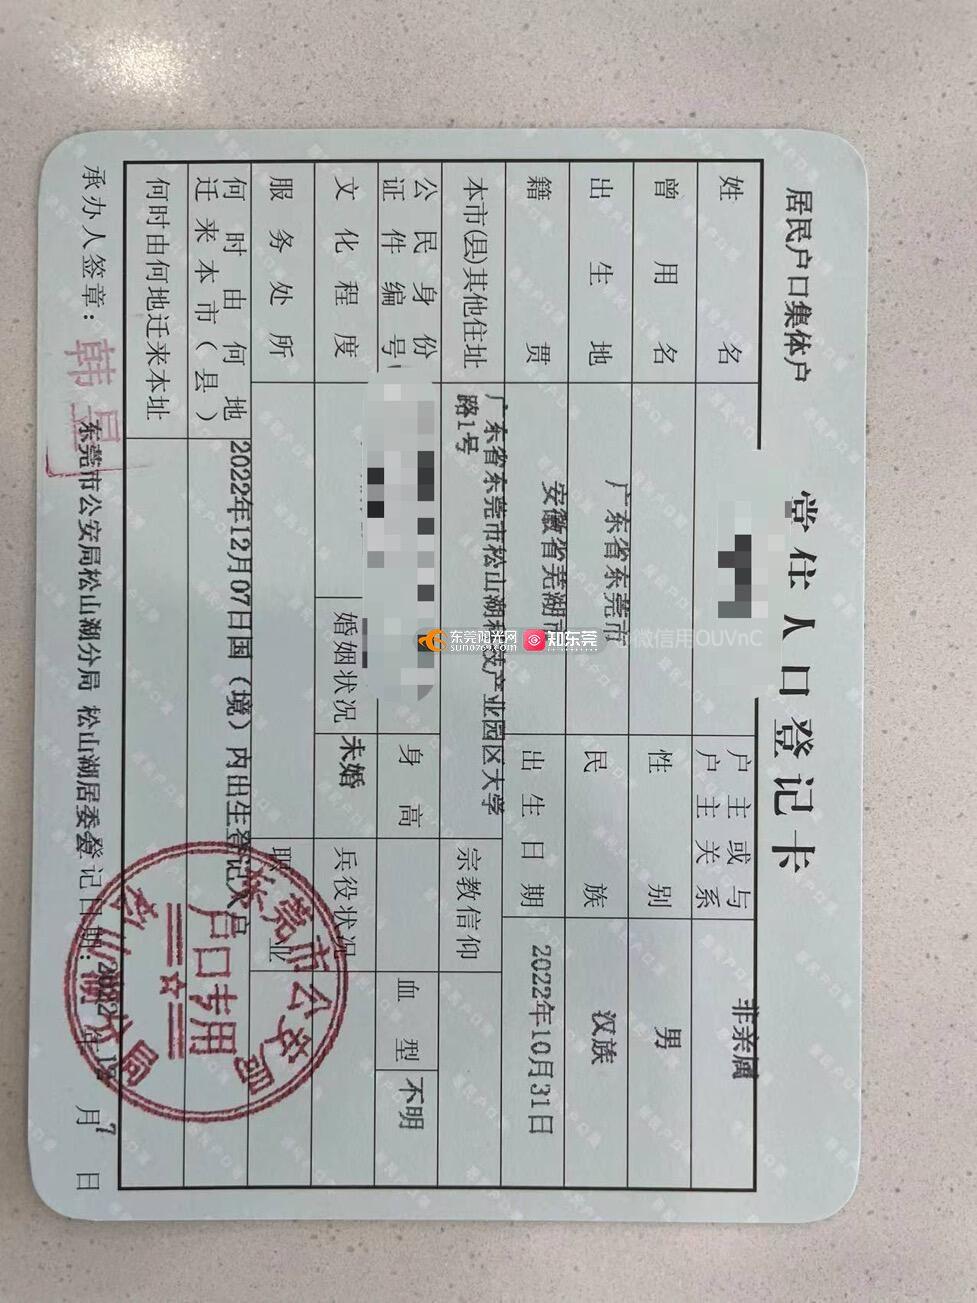 居民户口集体户
常住人口登记卡
姓名
户主或与户主关系 非亲属
曾用名
性别 男
出生地 广东省东莞市
民族 汉族
籍贯 安徽省芜湖市
出生日期 2022年10月31日
本市(县)其他住址 广东省东莞市松山湖科技产业园区大学
路1号
宗教信仰
公民身份
证件编号
身高
血型 不明
文化程度
婚姻状况 未婚
兵役状况
服务处所
职业
何时由何地
迁来本市(县)
2022年12月07日国(境)内出生登记入户
何时由何地迁来本址
承办人签章:
韩
东莞市公安局松山湖分局 松山湖居委会
登记日期: 2022年12月7日
东莞市公安局
松山湖分局
户口专用
东莞阳光网
sun0769.com
知东莞
微信用OUVnC